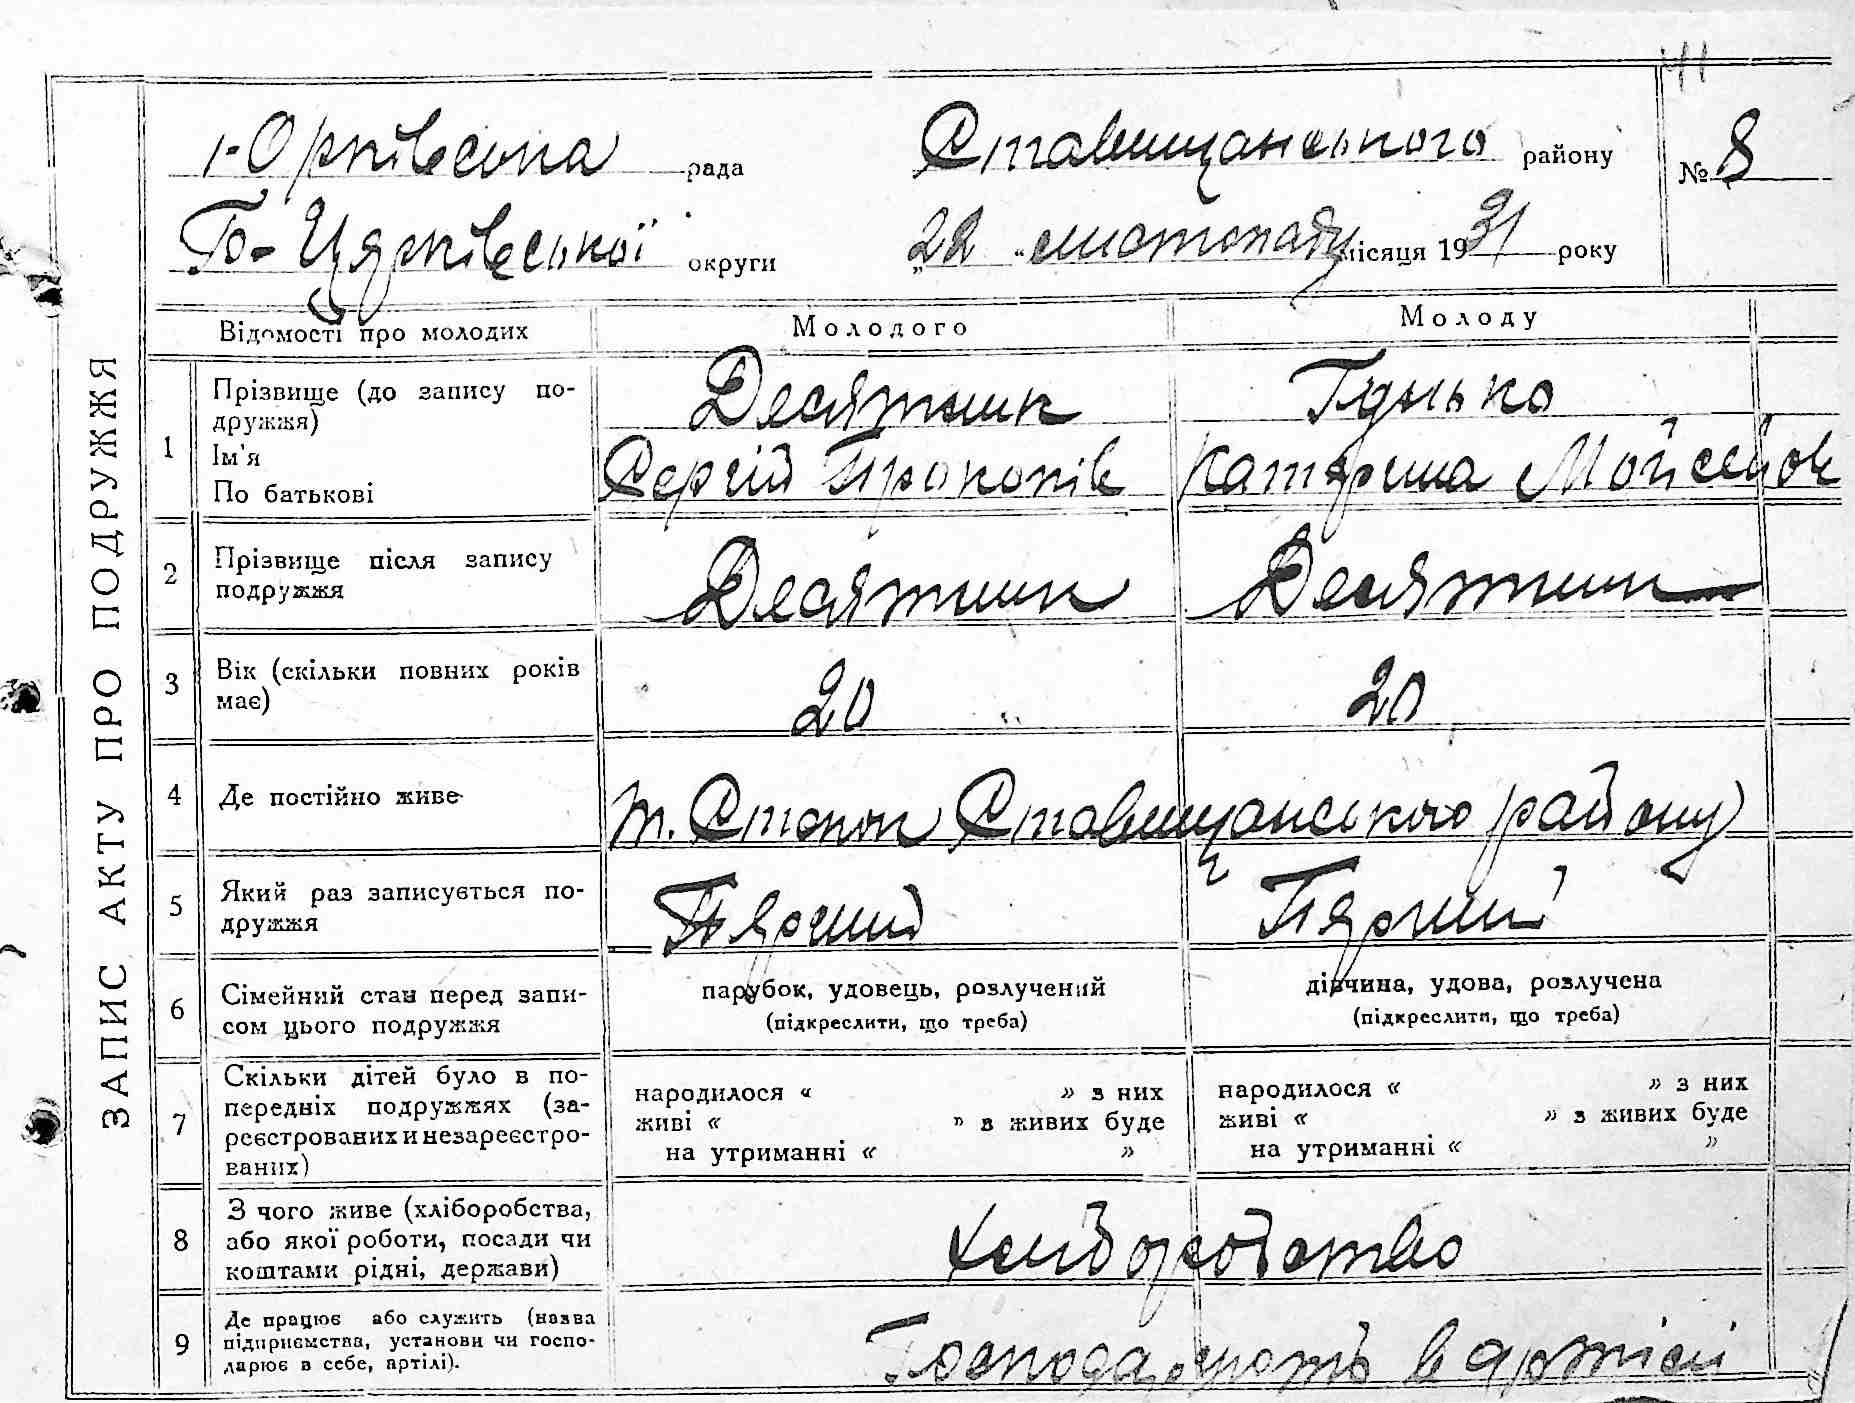 41
Юрківська рада Ставищанського району № 8
Б-Церківської округи „22“ листопаду місяця 1931 року
ЗАПИС АКТУ ПРО ПОДРУЖЖЯ
Відомості про молодих Молодого Молоду
1 Прізвище (до запису по-
дружжя)
Ім'я
По батькові
Десятник
Сергій Прокопів
Гдинько
Катерина Мойсейов
2 Прізвище після запису
подружжя
Десятник Десятник
3 Вік (скільки повних років
має)
20 20
4 Де постійно живе
Ставищанського району
5 Який раз записується по-
дружжя
Перший Перший
6 Сімейний стан перед запи-
сом цього подружжя
парубок, удовець, розлучений
(підкреслити, що треба)
дівчина, удова, розлучена
(підкреслити, що треба)
7 Скільки дітей було в по-
передніх подружжях (за-
реєстрованих и незареєстро-
ваних)
народилося « » з них
живі « » з живих буде
на утриманні « »
народилося « » з них
живі « » з живих буде
на утриманні « »
8 З чого живе (хліборобства,
або якої роботи, посади чи
коштами рідні, держави)
хліборобство
9 Де працює або служить (назва
підприємства, установи чи госпо-
дарює в себе, артілі).
Господарюють в артілі